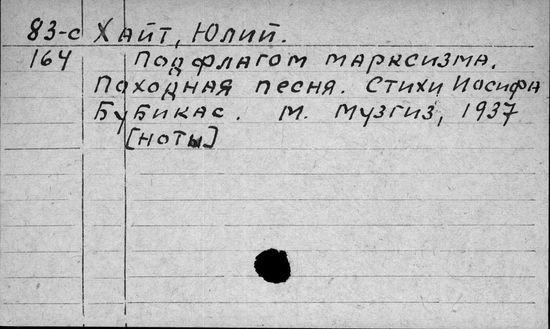 83-с Хайт, Юлий.
164 Под флагом марксизма.
Походная песня. Стихи Иосифа
Бубикас. М. Музгиз, 1937
[ноты]